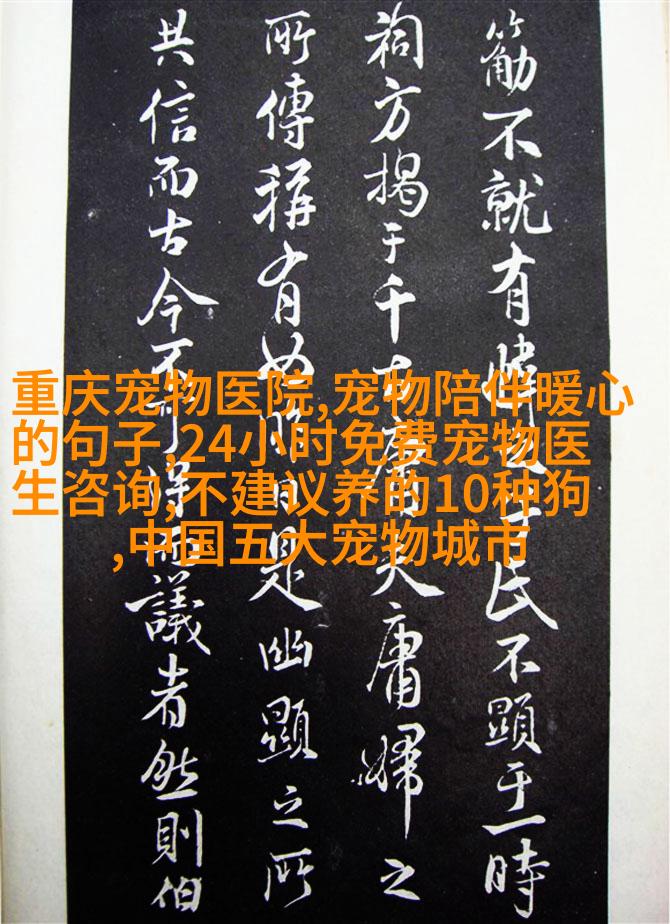 不就有民不顯于一時
祠方揭于千夫庸婦之
所傳稱有是幽顯之所
共信而古今不可得而議者然則伯
重庆宠物医院,宠物陪伴暖心
的句子,24小时免费宠物医
生咨询,不建议养的10种狗
,中国五大宠物城市